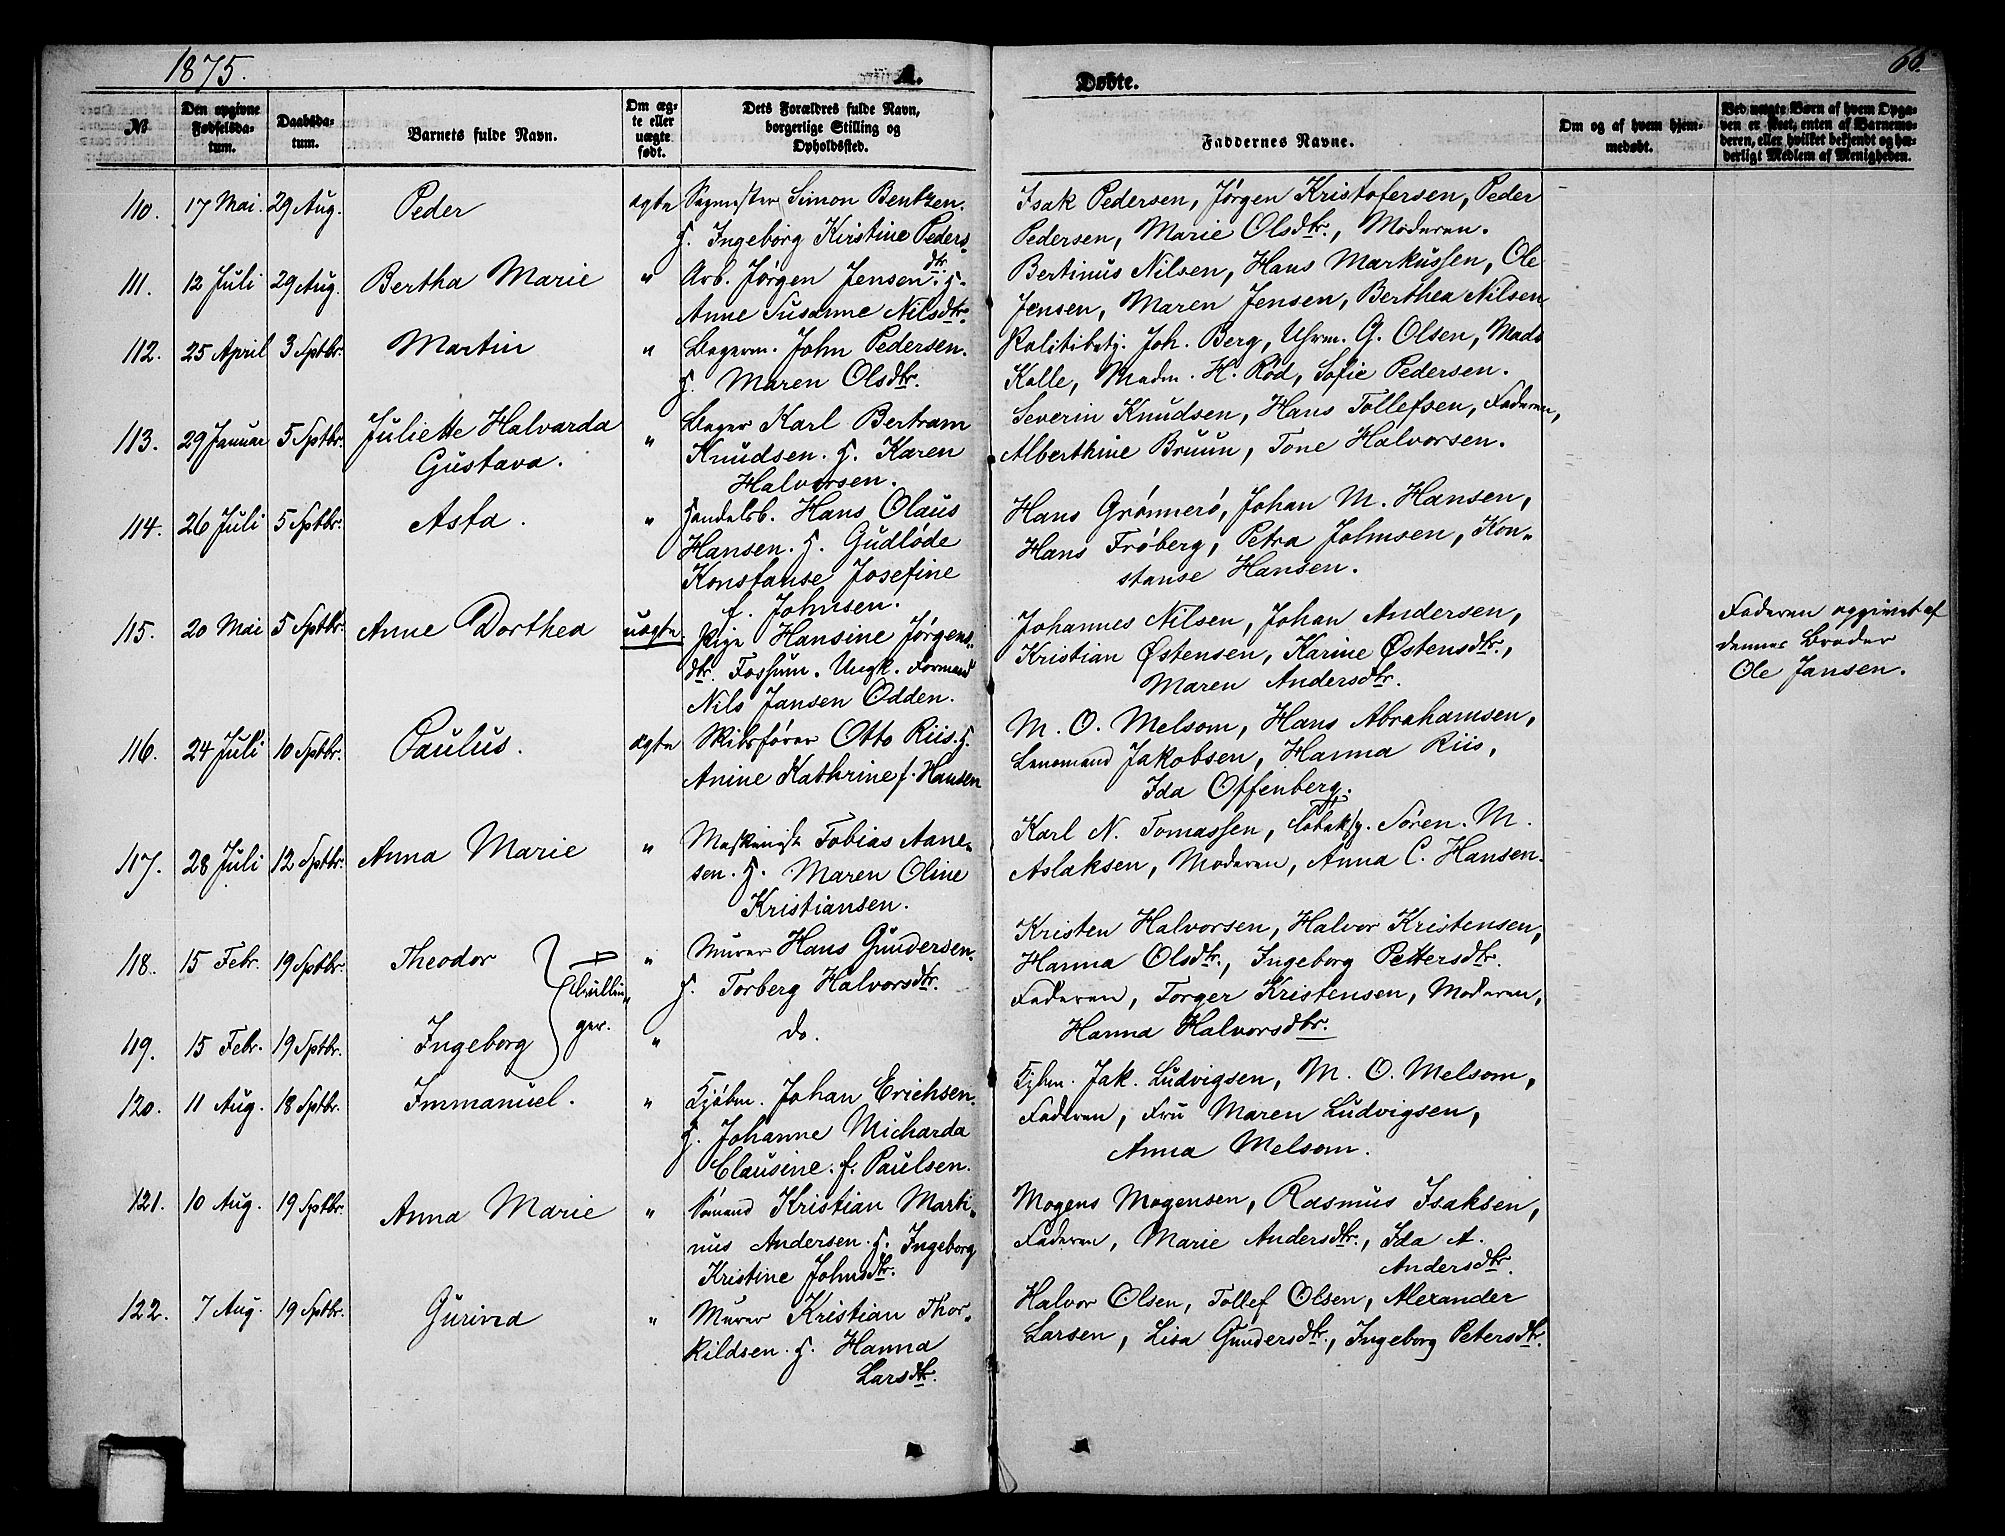 1875.
A.
Døbte.
66.
№
Den opgivne Fødselsdatum.
Daabsdatum.
Barnets fulde Navn.
Om ægte eller uægte født.
Dets Forældres fulde Navn, borgerlige Stilling og Opholdssted.
Faddernes Navne.
Om og af hvem hjemmedøbt.
Ved uægte Børn af hvem Opgaven er skeet, enten af Barnemoderen, eller hvilket bekjendt og hæderligt Medlem af Menigheden.
110. 17 Mai. 29 Aug. Peder ægte Sagmester Simon Bentzen.
H. Ingeborg Kirstine Peders-
dtr.
Isak Pedersen, Jørgen Kristofersen, Peder
Pedersen, Marie Olsdtr., Moderen.
111. 12 Juli 29 Aug. Bertha Marie " Arb. Jørgen Jensen. H.
Anne Susanne Nilsdtr.
Bertinus Nilsen, Hans Markussen, Ole
Jensen, Maren Jensen, Berthea Nilsen
112. 25 April 3 Sptbr. Martin " Bagerm. John Pedersen.
H. Maren Olsdtr.
Politibetj. Joh. Berg, Uhrm. G. Olsen, Mads
Kolle, Madm. H. Rød, Sofie Pedersen.
113. 29 Januar 5 Sptbr. Juliette Halvarda
Gustava.
" Bager Karl Bertram
Knudsen. H. Karen
Halvorsen.
Severin Knudsen, Hans Tollefsen, Faderen,
Alberthine Bruun, Tone Halvorsen.
114. 26 Juli 5 Sptbr. Asta. " Handelsb. Hans Olaus
Hansen. H. Gudløde
Konstanse Josefine
f. Johnsen.
Hans Grønnerø, Johan M. Hansen,
Hans Frøberg, Petra Johnsen, Kon-
stanse Hansen.
115. 20 Mai 5 Sptbr. Anne Dorthea uægte Pige Hansine Jørgens-
dtr. Fossum. Ungk. Formand
Nils Jansen Odden.
Johannes Nilsen, Johan Andersen,
Kristian Østensen, Karine Østensdtr.,
Maren Andersdtr.
Faderen opgivet af
dennes Broder
Ole Jansen.
116. 24 Juli 10 Sptbr. Paulus. ægte Skibsfører Otto Riis. H.
Anine Kathrine f. Hansen
M. O. Melsom, Hans Abrahamsen,
Lensmand Jakobsen, Hanna Riis,
Ida Offenberg.
117. 28 Juli 12 Sptbr. Anna Marie " Maskinist Tobias Aane-
sen. H. Maren Oline
Kristiansen.
Karl N. Tomassen, Tobaksf. Søren. M.
Aslaksen, Moderen, Anna C. Hansen.
118. 15 Febr. 19 Sptbr. Theodor " Murer Hans Gundersen.
H. Torberg Halvorsdtr.
Tvillin-
ger.
Kristen Halvorsen, Halvor Kristensen,
Hanna Olsdtr., Ingeborg Pettersdtr.
119. 15 Febr. 19 Sptbr. Ingeborg " do.
Faderen, Torger Kristensen, Moderen,
Hanna Halvorsdtr.
120. 11 Aug. 18 Sptbr. Immanuel. " Kjøbm. Johan Erichsen.
H. Johanne Micharda
Clausine. f. Paulsen.
Kjbm. Jak. Ludvigsen, M. O. Melsom,
Faderen, Fru Maren Ludvigsen,
Anna Melsom.
121. 10 Aug. 19 Sptbr. Anna Marie " Sømand Kristian Marti-
nus Andersen. H. Ingeborg
Kristine Johnsdtr.
Mogens Mogensen, Rasmus Isaksen,
Faderen, Marie Andersdtr., Ida A.
Andersdtr.
122. 7 Aug. 19 Sptbr. Gurina " Murer Kristian Thor-
kildsen. H. Hanna
Larsdtr.
Halvor Olsen, Tollef Olsen, Alexander
Larsen, Lisa Gundersdtr., Ingeborg Petersdtr.